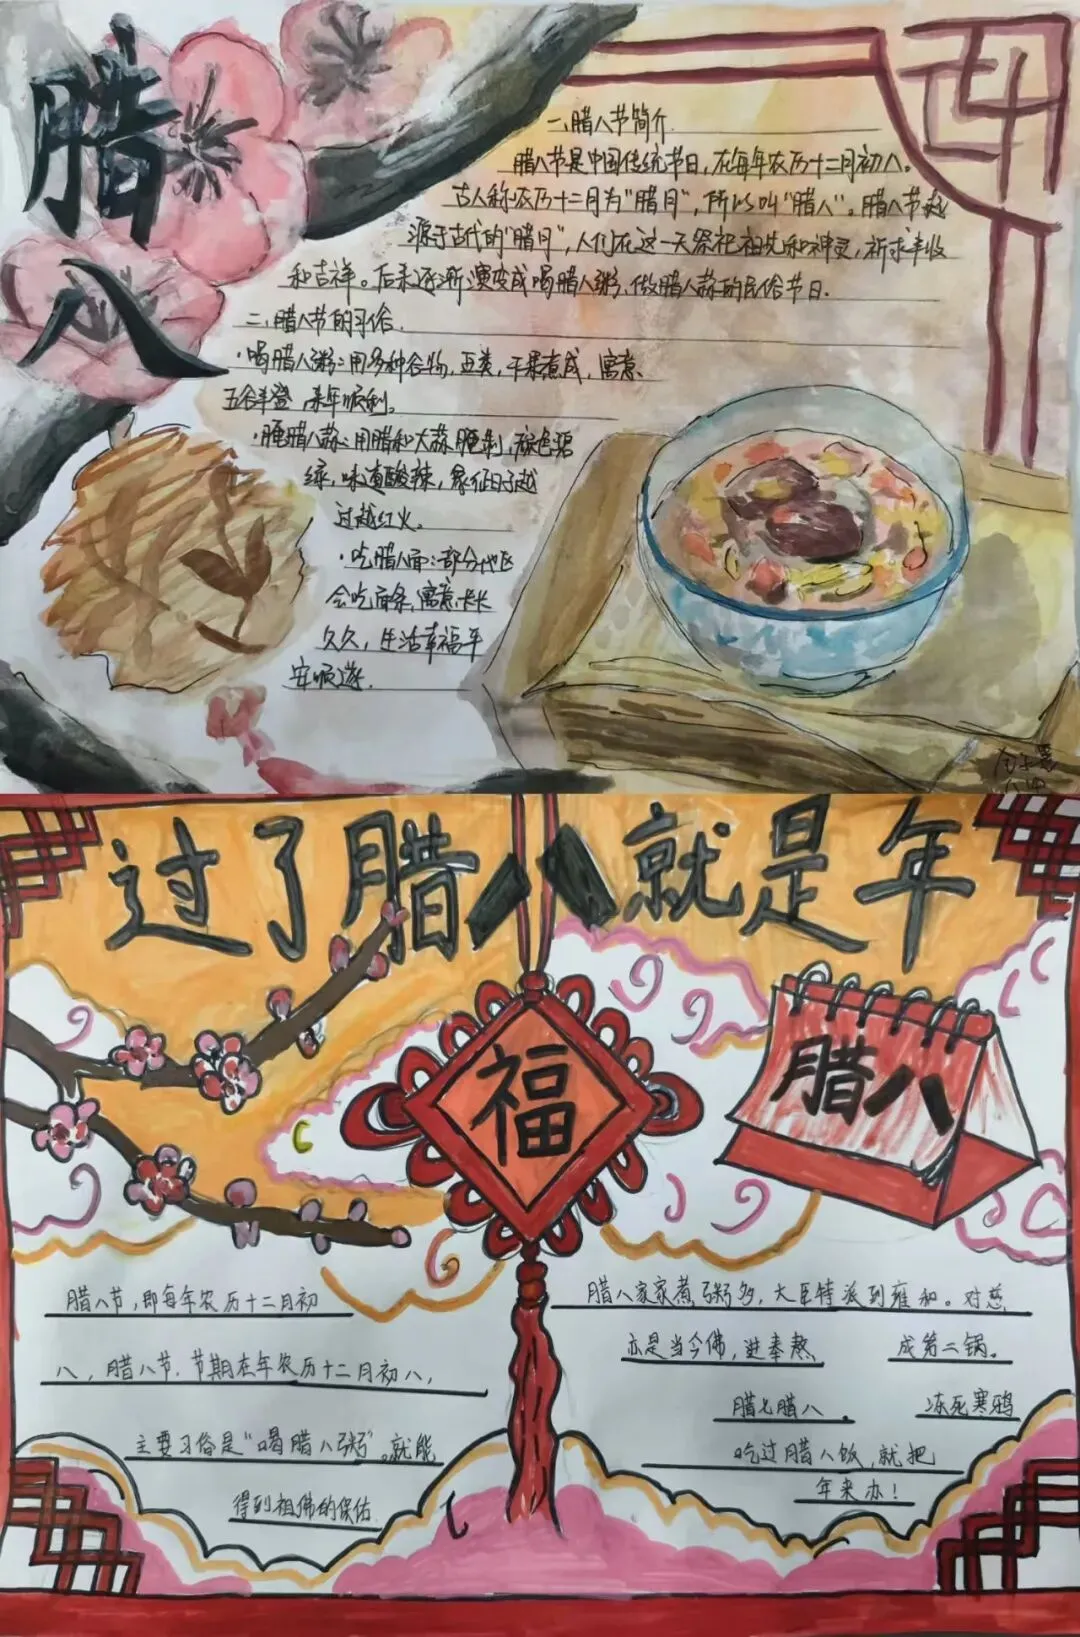 腊八
一、腊八节简介
腊八节是中国传统节日，在每年农历十二月初八。
古人称农历十二月为"腊月"，所以叫"腊八"。腊八节起
源于古代的"腊月"，人们在这一天祭祀祖先和神灵，祈求丰收
和吉祥。后来逐渐演变成喝腊八粥、做腊八蒜的民俗节日.
二、腊八节的习俗.
·喝腊八粥：用多种谷物，豆类，干果煮成，寓意
五谷丰登，来年顺利。
·腌腊八蒜：用腊和大蒜腌制，颜色碧
绿，味道酸辣，象征日子越
过越红火。
·吃腊八面：部分地区
会吃面条，寓意长长
久久，生活幸福平
安顺遂.
过了腊八就是年
福
腊八
腊八节，即每年农历十二月初
八，腊八节.节期在年农历十二月初八，
主要习俗是"喝腊八粥"。就能
得到祖佛的保佑
腊八家家煮粥多，大臣特派到雍和。对慈
亦是当今佛，进奉熬 成第二锅。
腊七腊八， 冻死寒鸦
吃过腊八饭，就把
年来办！